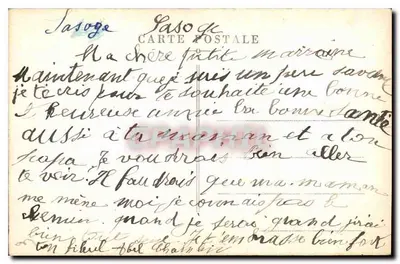 Sasoge Sasoge
CARTE POSTALE
Ma chère petite marraine
Maintenant que je suis un peu savant
je técris pour te souhaité une bonne
heureuse année la bonne santé
aussi à ta maman et a ton
papa Je voudrais bien aller
te voir. Il faudrais que ma maman
me mène moi je connais pas le
chemin. quand je serai grand j'irai
bien tout Je t'embrasse bien fort
ton filleul Abel